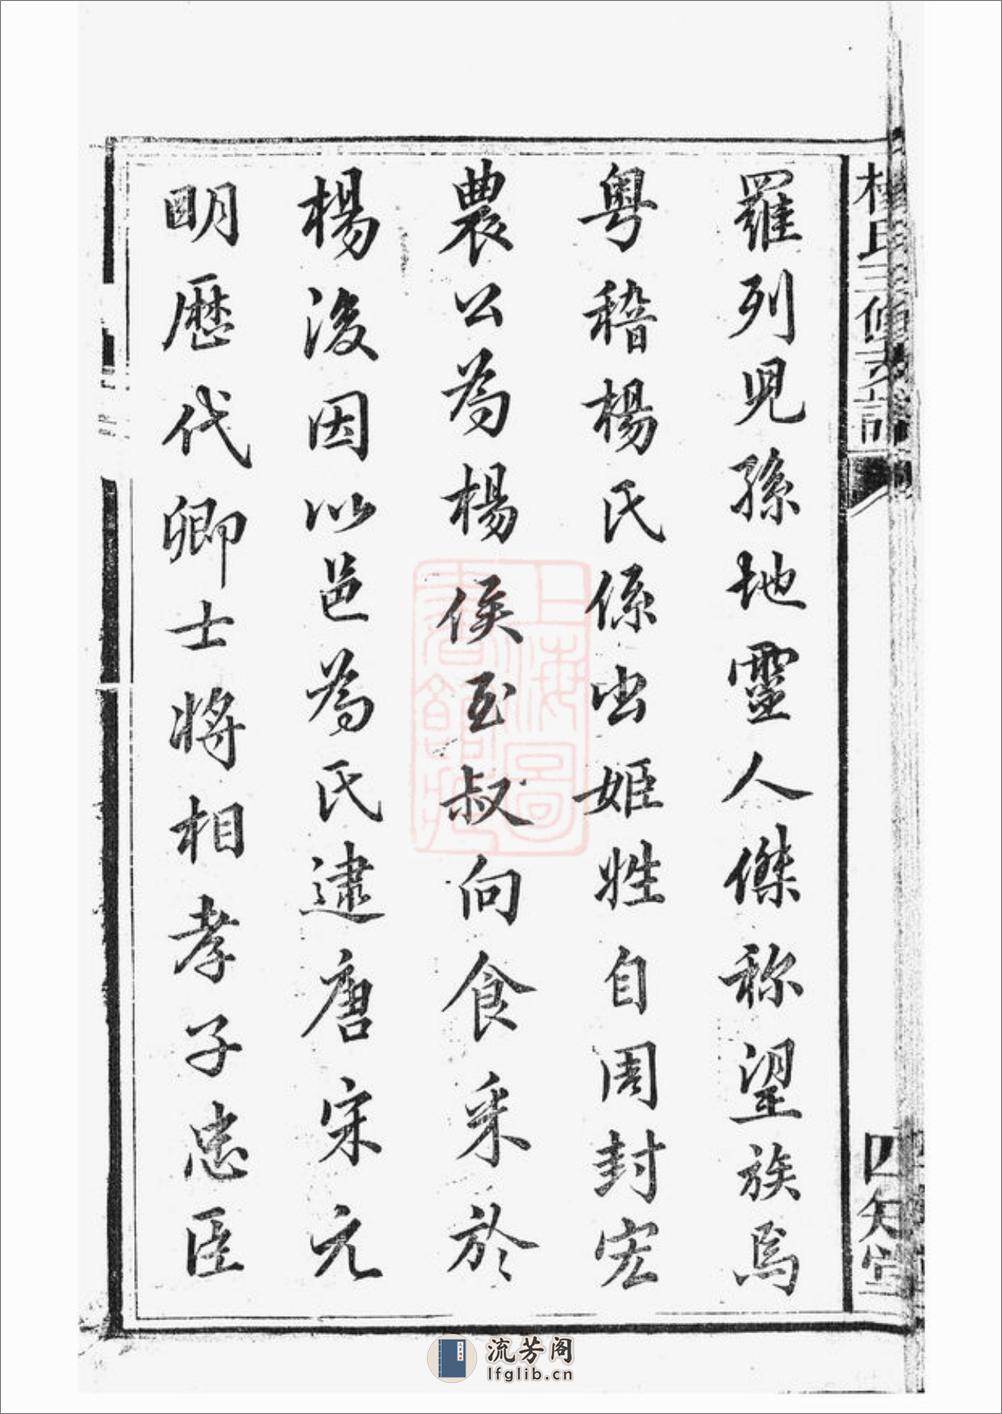 楊氏三修支譜
四知堂
羅列児孫地靈人傑称望族焉
粵稽楊氏係出姬姓自周封宏
農公為楊侯至叔向食采於
楊後因以邑為氏逮唐宋元
明歷代卿士將相孝子忠臣
上海圖書館藏
流芳阁
lfglib.cn